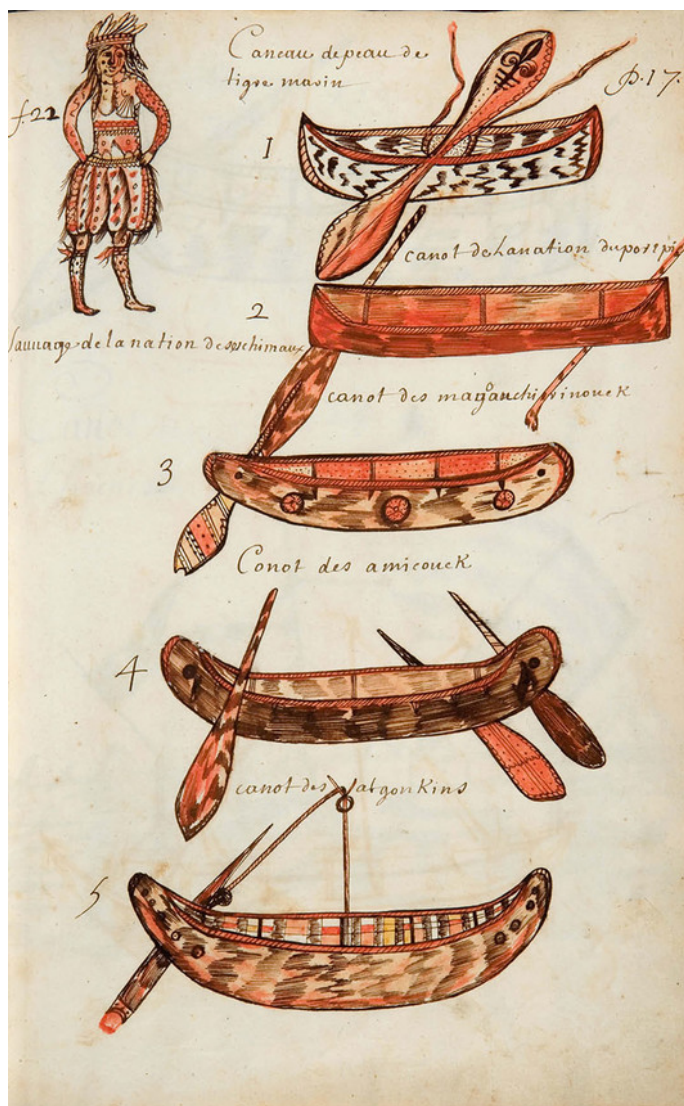 Caneau de peau de
tigre marin
P. 17.
f. 22
1
canot de la nation du porc pic
2
sauuage de la nation des eschimaux
canot des magouchirinouek
3
Canot des amicouek
4
canot des algonkins
5